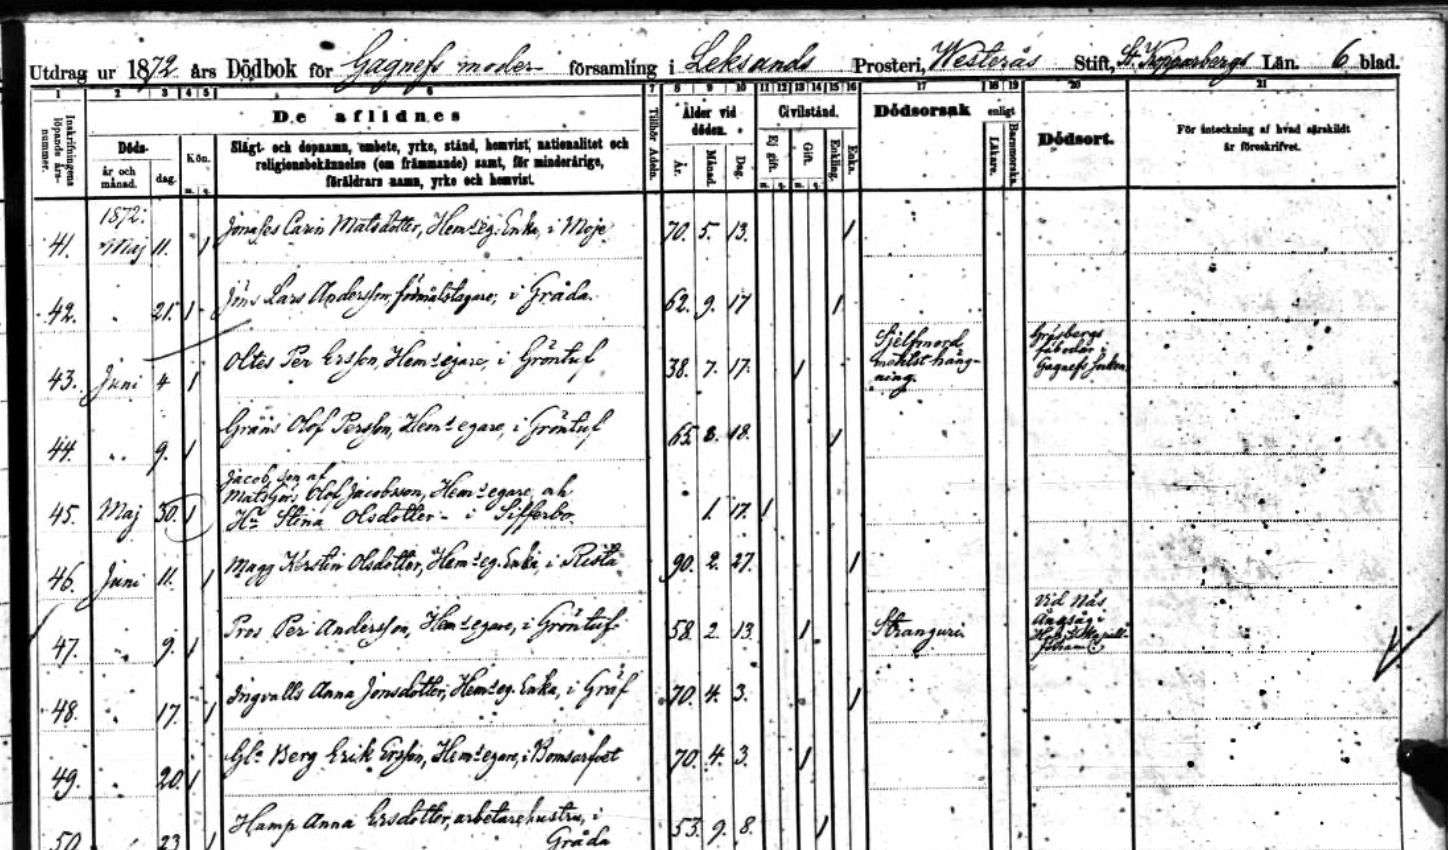 Utdrag ur 1872 års Dödbok för Gagnefs moder församling i Leksands Prosteri, Westerås Stift, St. Kopparbergs Län. 6 blad.
1 2 3 4 5 6 7 8 9 10 11 12 13 14 15 16 17 18 19 20 21
Inskrifningens löpande års-nummer.
De aflidnes
Döds-
år och månad.
dag.
Kön.
m. q.
Slägt- och dopnamn, embete, yrke, stånd, hemvist, nationalitet och
religionsbekännelse (om främmande) samt, för minderårige,
föräldrars namn, yrke och hemvist.
Tillhör Adeln.
Ålder vid
döden.
År. Månad. Dag.
Civilstånd.
Ej gift. Gift. Enkling. Enka.
m. q. m. q.
Dödsorsak
enligt
Läkare. Barnmorska.
Dödsort.
För inteckning af hvad särskildt
är föreskrifvet.
1872:
41. Maj 11. 1 Jonases Carin Matsdotter, Hemseg. Enka, i Moje 70. 5. 13. 1
42. " 21. 1 Jöns Lars Andersson, födorålstagare, i Gråda. 62. 9. 17 1
43. Juni 4 1 Oltes Per Ersson, Hems egare, i Gröntuf 38. 7. 17. 1
Sjelfmord
medelst häng-
ning.
fäbodar i
Gagnefs socken.
44. " 9. 1 Gräns Olof Persson, Hems egare, i Gröntuf 65. 8. 18. 1
Jacob, son af
45. Maj 30. 1 Olof Jacobsson, Hems egare, och
Hu Stina Olsdotter i Sifferbo 1. 17. 1
46. Juni 11. 1 Magg Kerstin Olsdotter, Hems eg. Enka, i Rista 90. 2. 27. 1
47. " 9. 1 Pros Per Andersson, Hems egare, i Gröntuf 58. 2. 13. 1 Stranguri.
Vid Näs
Ångsåg i
48. " 17. 1 Ingvalls Anna Jonsdotter, Hems eg. Enka, i Gräf 70. 4. 3. 1
49. " 20. 1 Berg Erik Ersson, Hems egare, i Bomsarfvet 70. 4. 3. 1
50. " 23 1 Hamp Anna Ersdotter, arbetarehustru, i 53. 9. 8. 1
Gråda